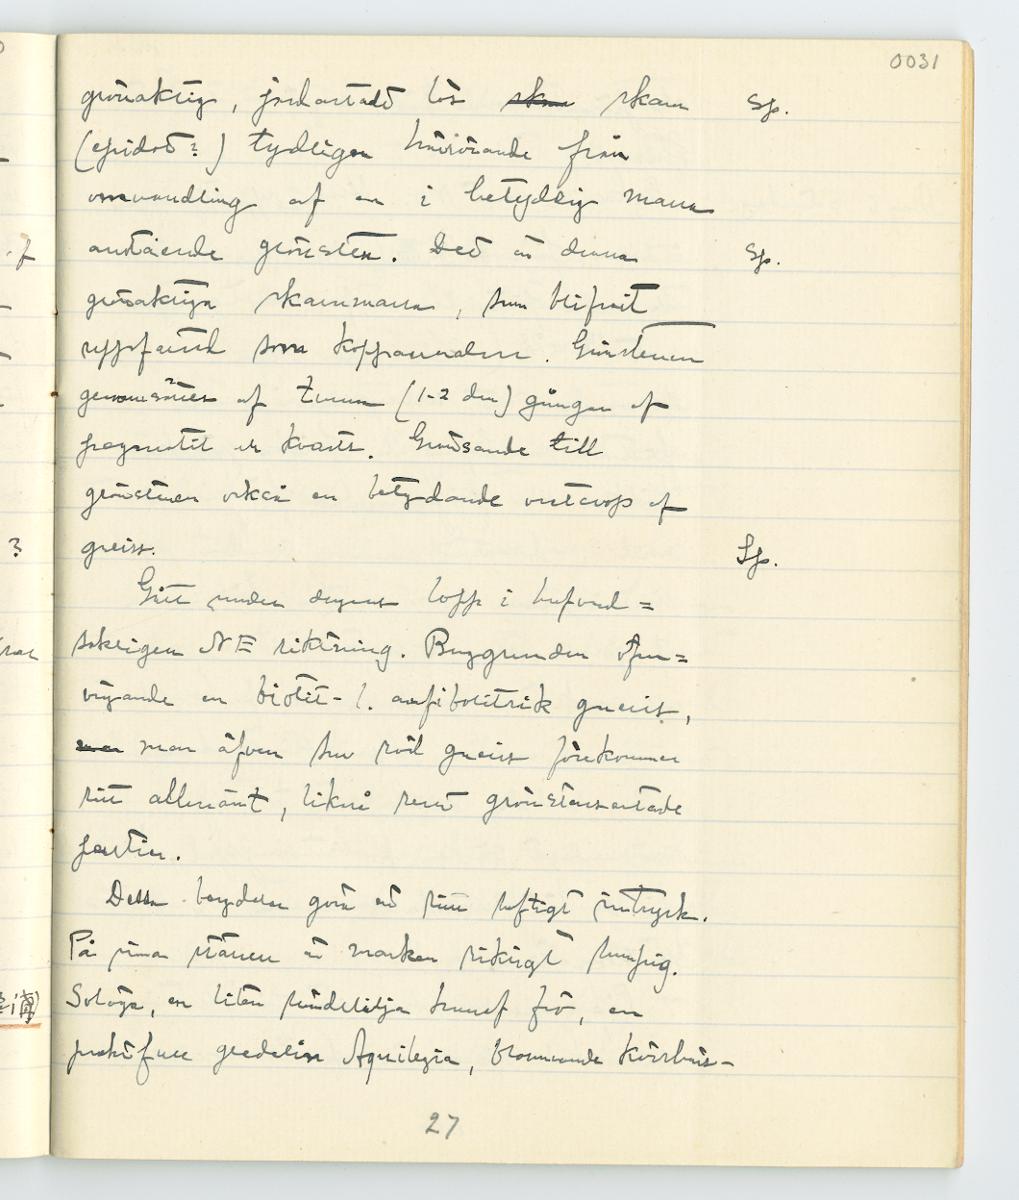 0031
grönaktig, jordartad lös skarn Sp.
(epidot?) tydligen härrörande från
omvandling af en i betydlig massa
anstående grönsten. Det är denna Sp.
grönaktiga skarnmassa, som blifvit
uppfattad som kopparmalm. Grönstenen
genomsättes af tunna (1-2 dm) gångar af
pegmatit och kvarts. Gränsande till
grönstenen också en betydande outcrop af
gneiss. Sp.
Gått under dagens lopp i hufvud=
sakligen NE riktning. Berggrunden öfver=
vägande en biotit- l. amfibolitrik gneiss,
men äfven sur röd gneiss förekommer
rätt allmänt, likså rent grönstensartade
partier.
Dessa bergdalar göra ett rätt saftigt intryck.
På sina ställen är marken riktigt sumpig.
Solöga, en liten hvid
praktfull gredelin Aquilegia, blommande körsbärs-
27